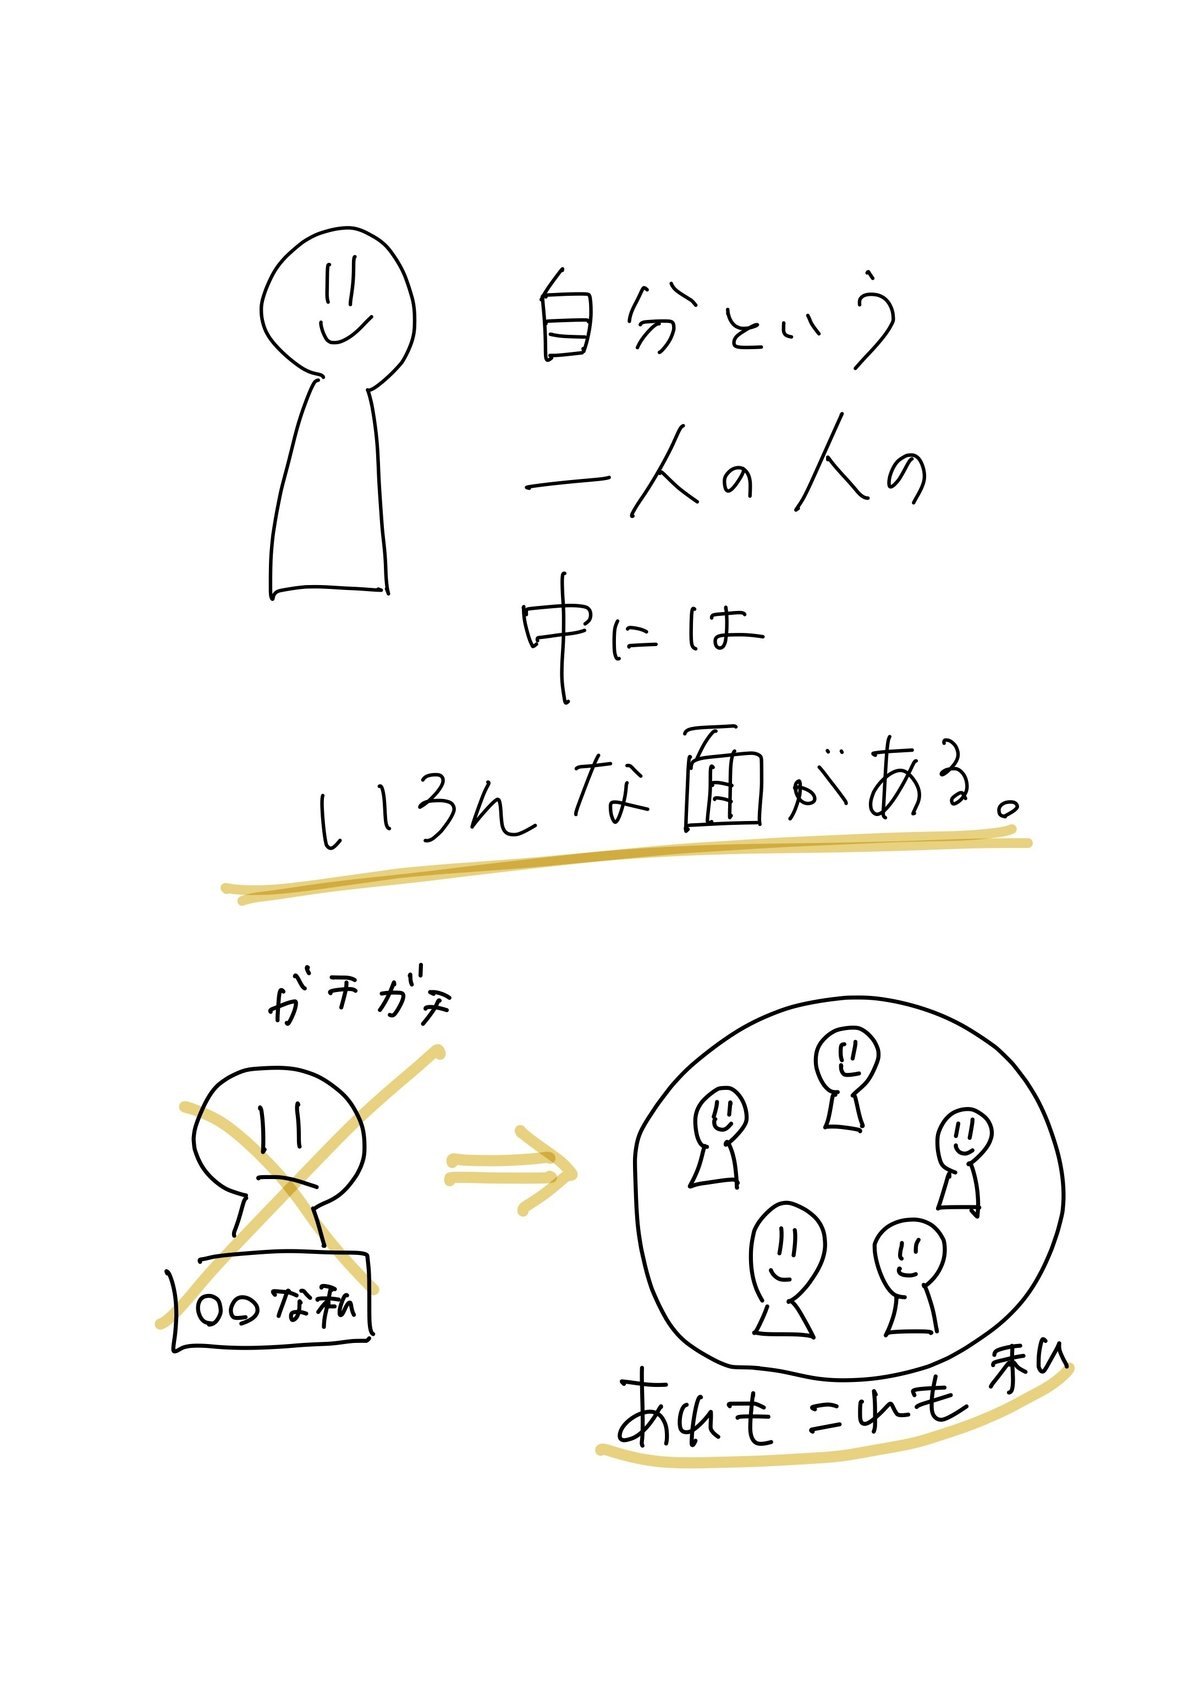 自分という
一人の人の
中には
いろんな面がある。
ガチガチ
○○な私
あれもこれも私